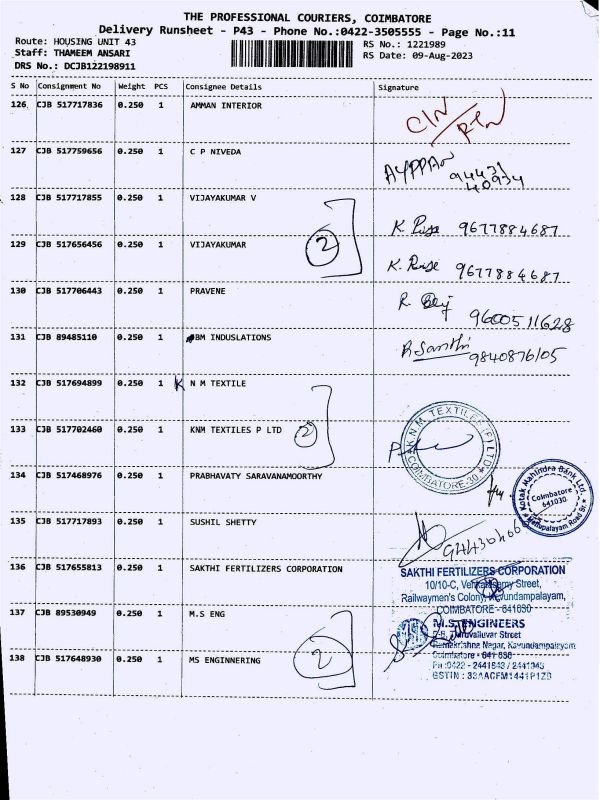 THE PROFESSIONAL COURIERS, COIMBATORE
Delivery Runsheet - P43 - Phone No.:0422-3505555 - Page No.:11
Route: HOUSING UNIT 43
RS No.: 1221989
Staff: THAMEEM ANSARI
RS Date: 09-Aug-2023
DRS No.: DCJB122198911
S No Consignment No Weight PCS Consignee Details Signature
126 CJB 517717836 0.250 1 AMMAN INTERIOR
127 CJB 517759656 0.250 1 C P NIVEDA AYPPAN 94431
40934
128 CJB 517717855 0.250 1 VIJAYAKUMAR V K. 9677884687
2
129 CJB 517656456 0.250 1 VIJAYAKUMAR K. 9677884687
130 CJB 517706443 0.250 1 PRAVENE R 9600511628
131 CJB 89485110 0.250 1 BM INDUSLATIONS R Santhi 9840876105
132 CJB 517694899 0.250 1 K N M TEXTILE
133 CJB 517702460 0.250 1 KNM TEXTILES P LTD 2
K.N.M TEXTILES (P) LTD
COIMBATORE-30
134 CJB 517468976 0.250 1 PRABHAVATY SARAVANAMOORTHY
Kotak Mahindra Bank Ltd.
Coimbatore
641030
Mettupalayam Road Br.
135 CJB 517717893 0.250 1 SUSHIL SHETTY
136 CJB 517655813 0.250 1 SAKTHI FERTILIZERS CORPORATION
SAKTHI FERTILIZERS CORPORATION
10/10-C, Street,
Railwaymen's Colony, Kavundampalayam,
COIMBATORE - 641030
137 CJB 89530949 0.250 1 M.S ENG
M.S. ENGINEERS
Thiruvalluvar Street
Ramakrishna Nagar, Kavundampalayam
Coimbatore - 641 030
138 CJB 517648930 0.250 1 MS ENGINNERING
2
Ph :0422 - 2441643 / 2441343
GSTIN : 33AACFM1441P1ZD